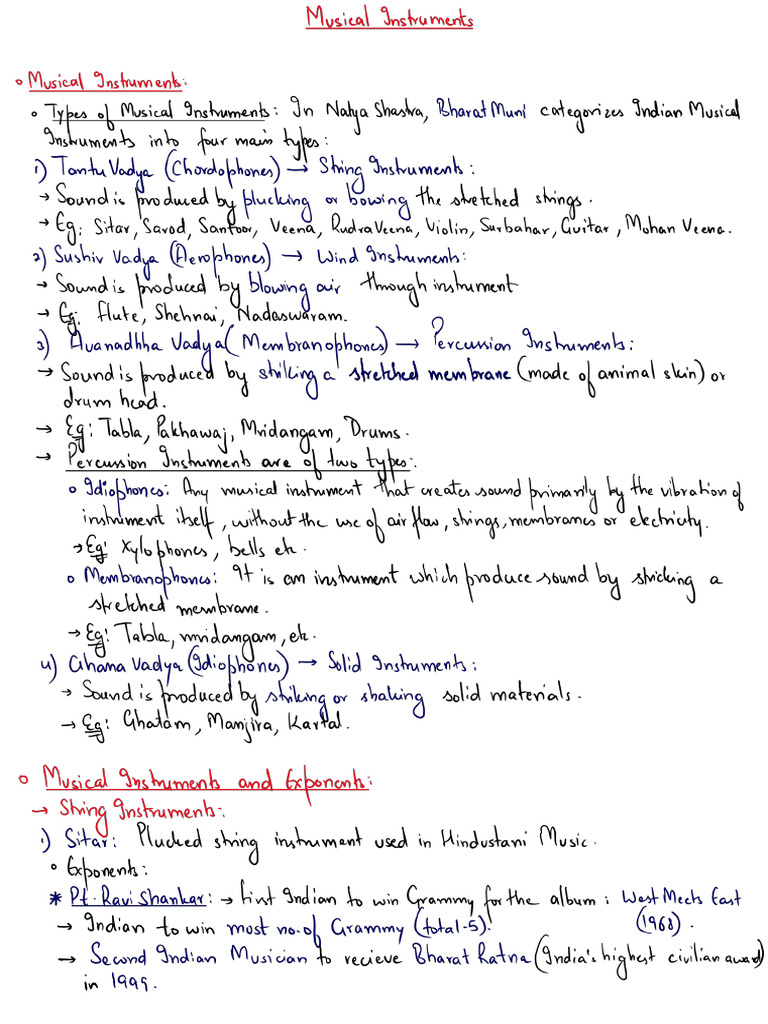 Musical Instruments
o Musical Instruments:
o Types of Musical Instruments: In Natya Shastra, Bharat Muni categorizes Indian Musical
Instruments into four main types:
1) Tantu Vadya (Chordophones) → String Instruments:
→ Sound is produced by plucking or bowing the stretched strings.
→ Eg: Sitar, Sarod, Santoor, Veena, Rudra Veena, Violin, Surbahar, Guitar, Mohan Veena.
2) Sushir Vadya (Aerophones) → Wind Instruments:
→ Sound is produced by blowing air through instrument
→ Eg: flute, Shehnai, Nadaswaram.
3) Avanadhha Vadya (Membranophones) → Percussion Instruments:
→ Sound is produced by striking a stretched membrane (made of animal skin) or
drum head.
→ Eg: Tabla, Pakhawaj, Mridangam, Drums.
→ Percussion Instruments are of two types:
o Idiophones: Any musical instrument that creates sound primarily by the vibration of
instrument itself, without the use of air flow, strings, membranes or electricity.
→ Eg: Xylophones, bells etc.
o Membranophones: It is an instrument which produce sound by stricking a
stretched membrane.
→ Eg: Tabla, mridangam, etc.
4) Ghana Vadya (Idiophones) → Solid Instruments:
→ Sound is produced by striking or shaking solid materials.
→ Eg: Ghatam, Manjira, Kartal.
o Musical Instruments and Exponents:
→ String Instruments:
1) Sitar: Plucked string instrument used in Hindustani Music.
• Exponents:
* Pt. Ravi Shankar: → first Indian to win Grammy for the album: West Meets East
→ Indian to win most no. of Grammy (total-5). (1968).
→ Second Indian Musician to recieve Bharat Ratna (India's highest civilian award)
in 1999.